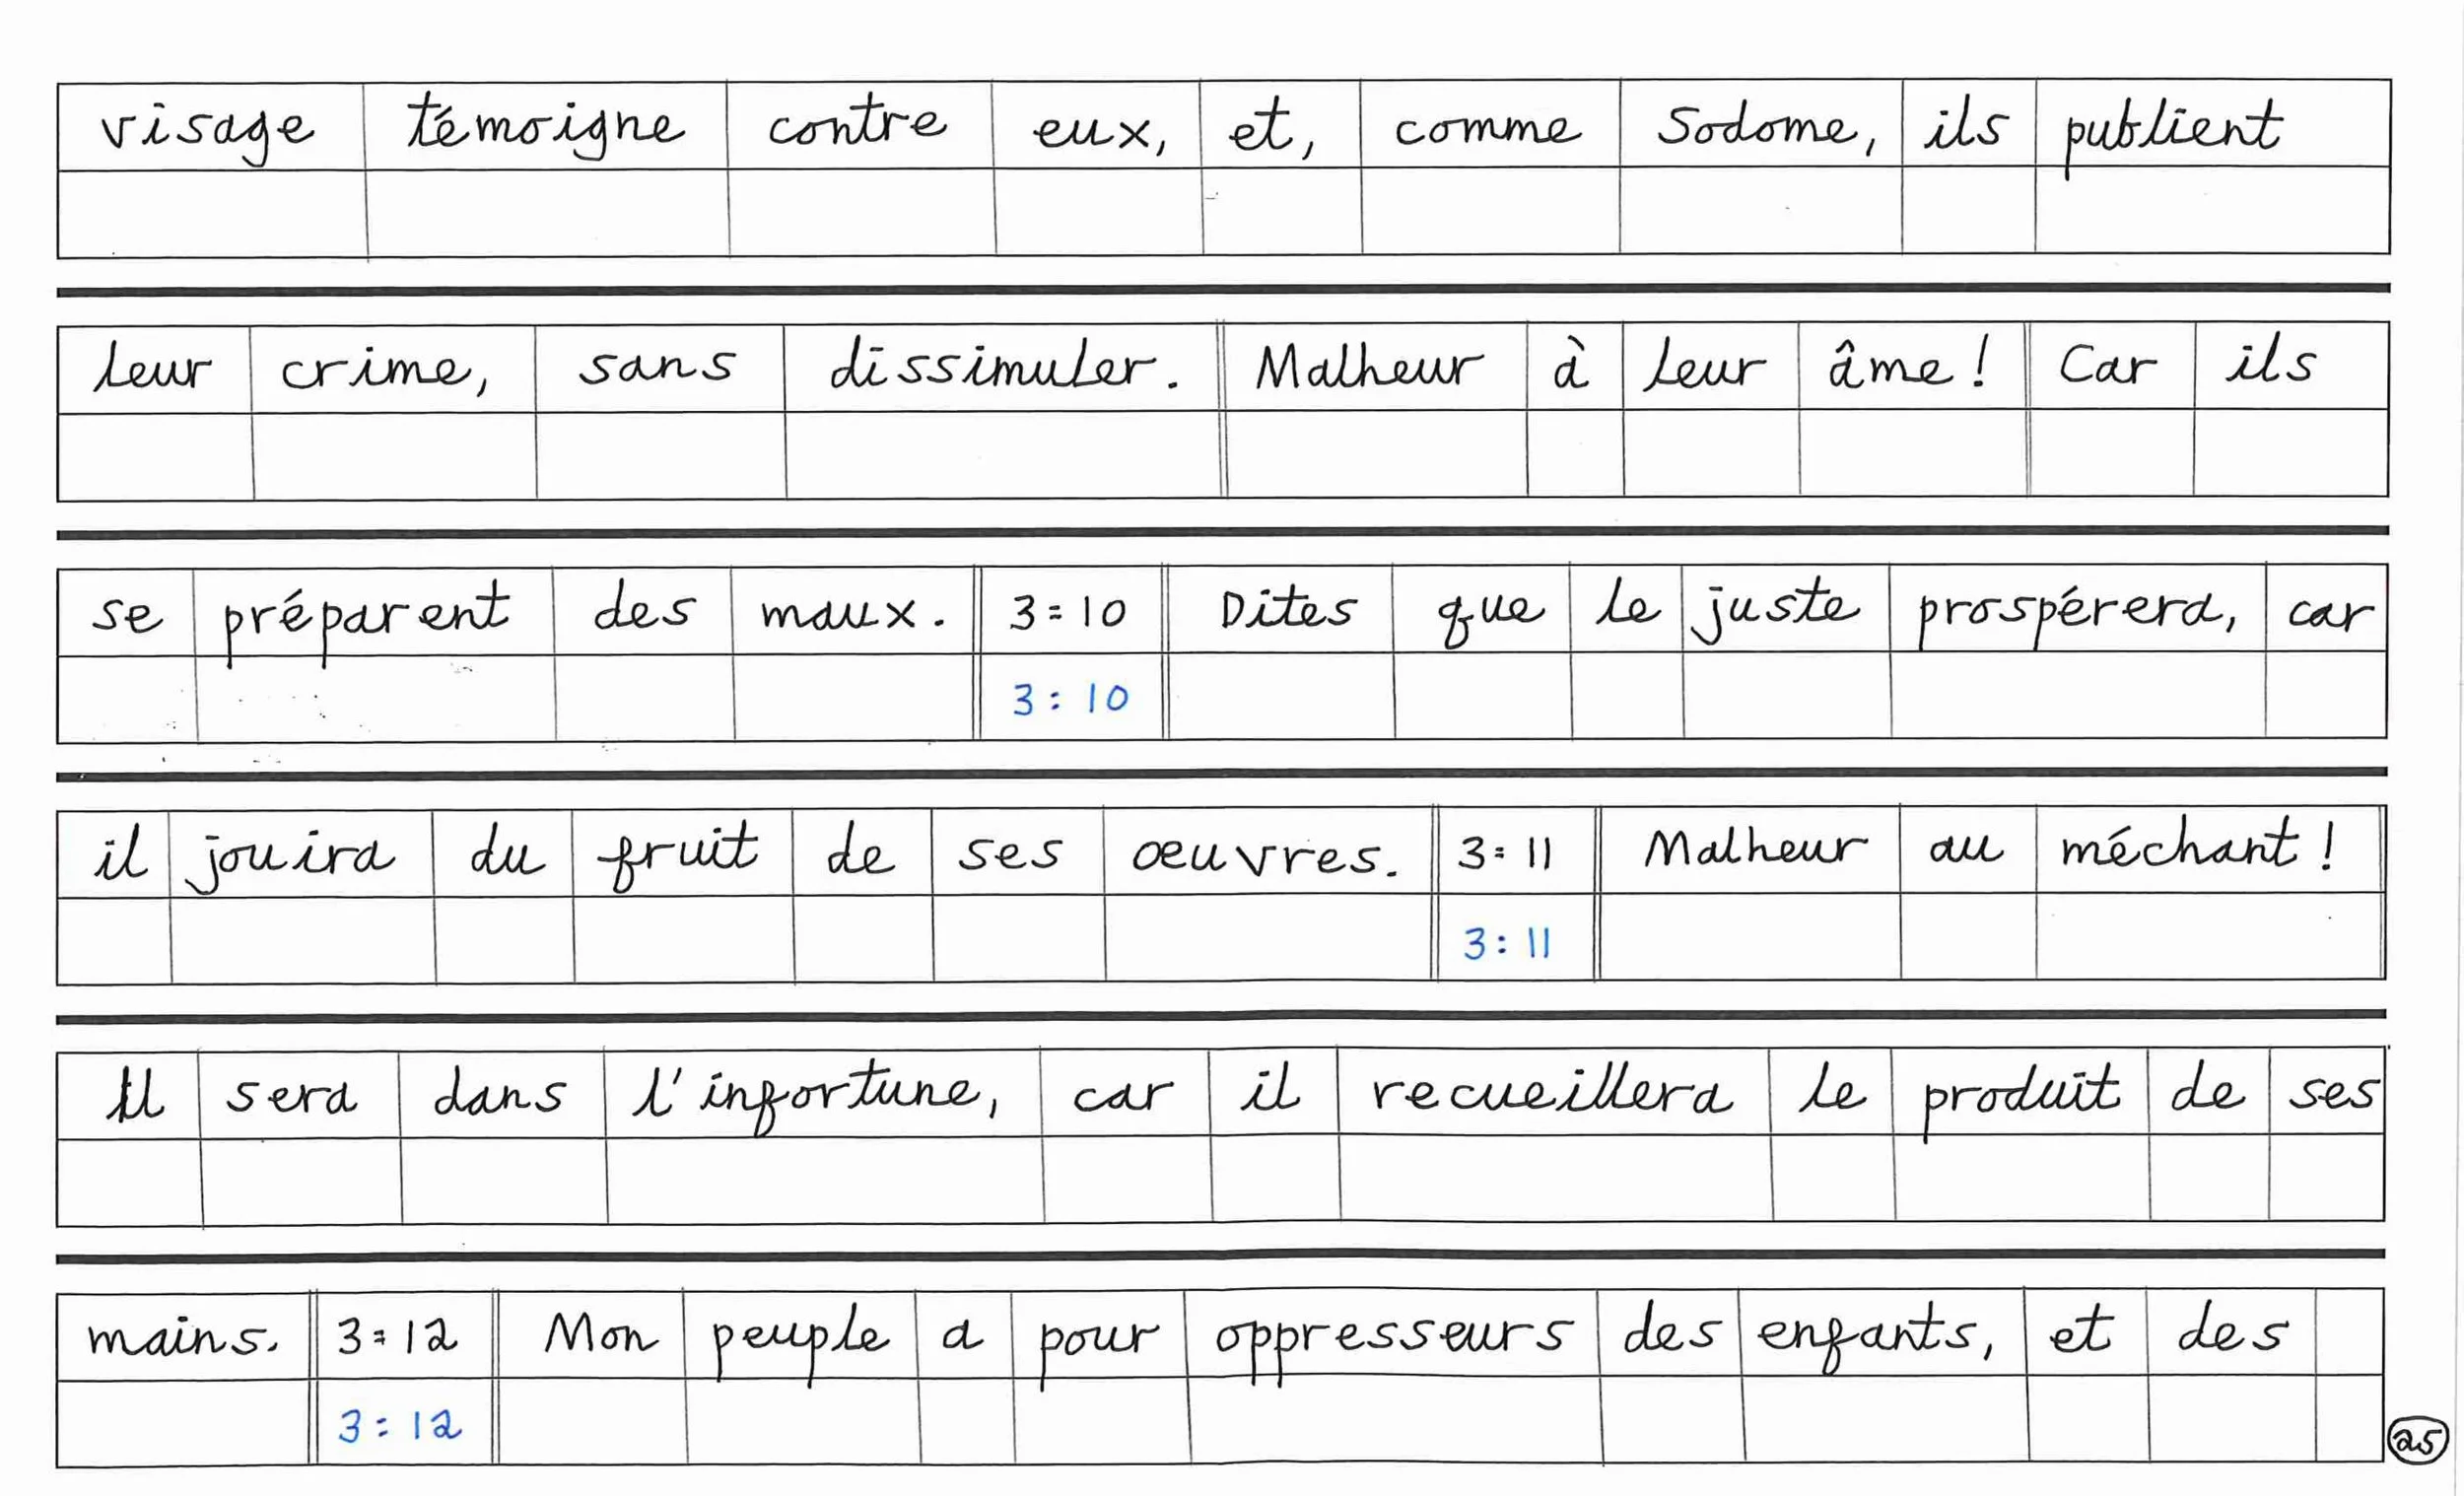 visage témoigne contre eux, et, comme Sodome, ils publient
leur crime, sans dissimuler. Malheur à leur âme! Car ils
se préparent des maux. 3:10 Dites que le juste prospérera, car
3:10
il jouira du fruit de ses oeuvres. 3:11 Malheur au méchant!
3:11
Il sera dans l'infortune, car il recueillera le produit de ses
mains. 3:12 Mon peuple a pour oppresseurs des enfants, et des
3:12
25